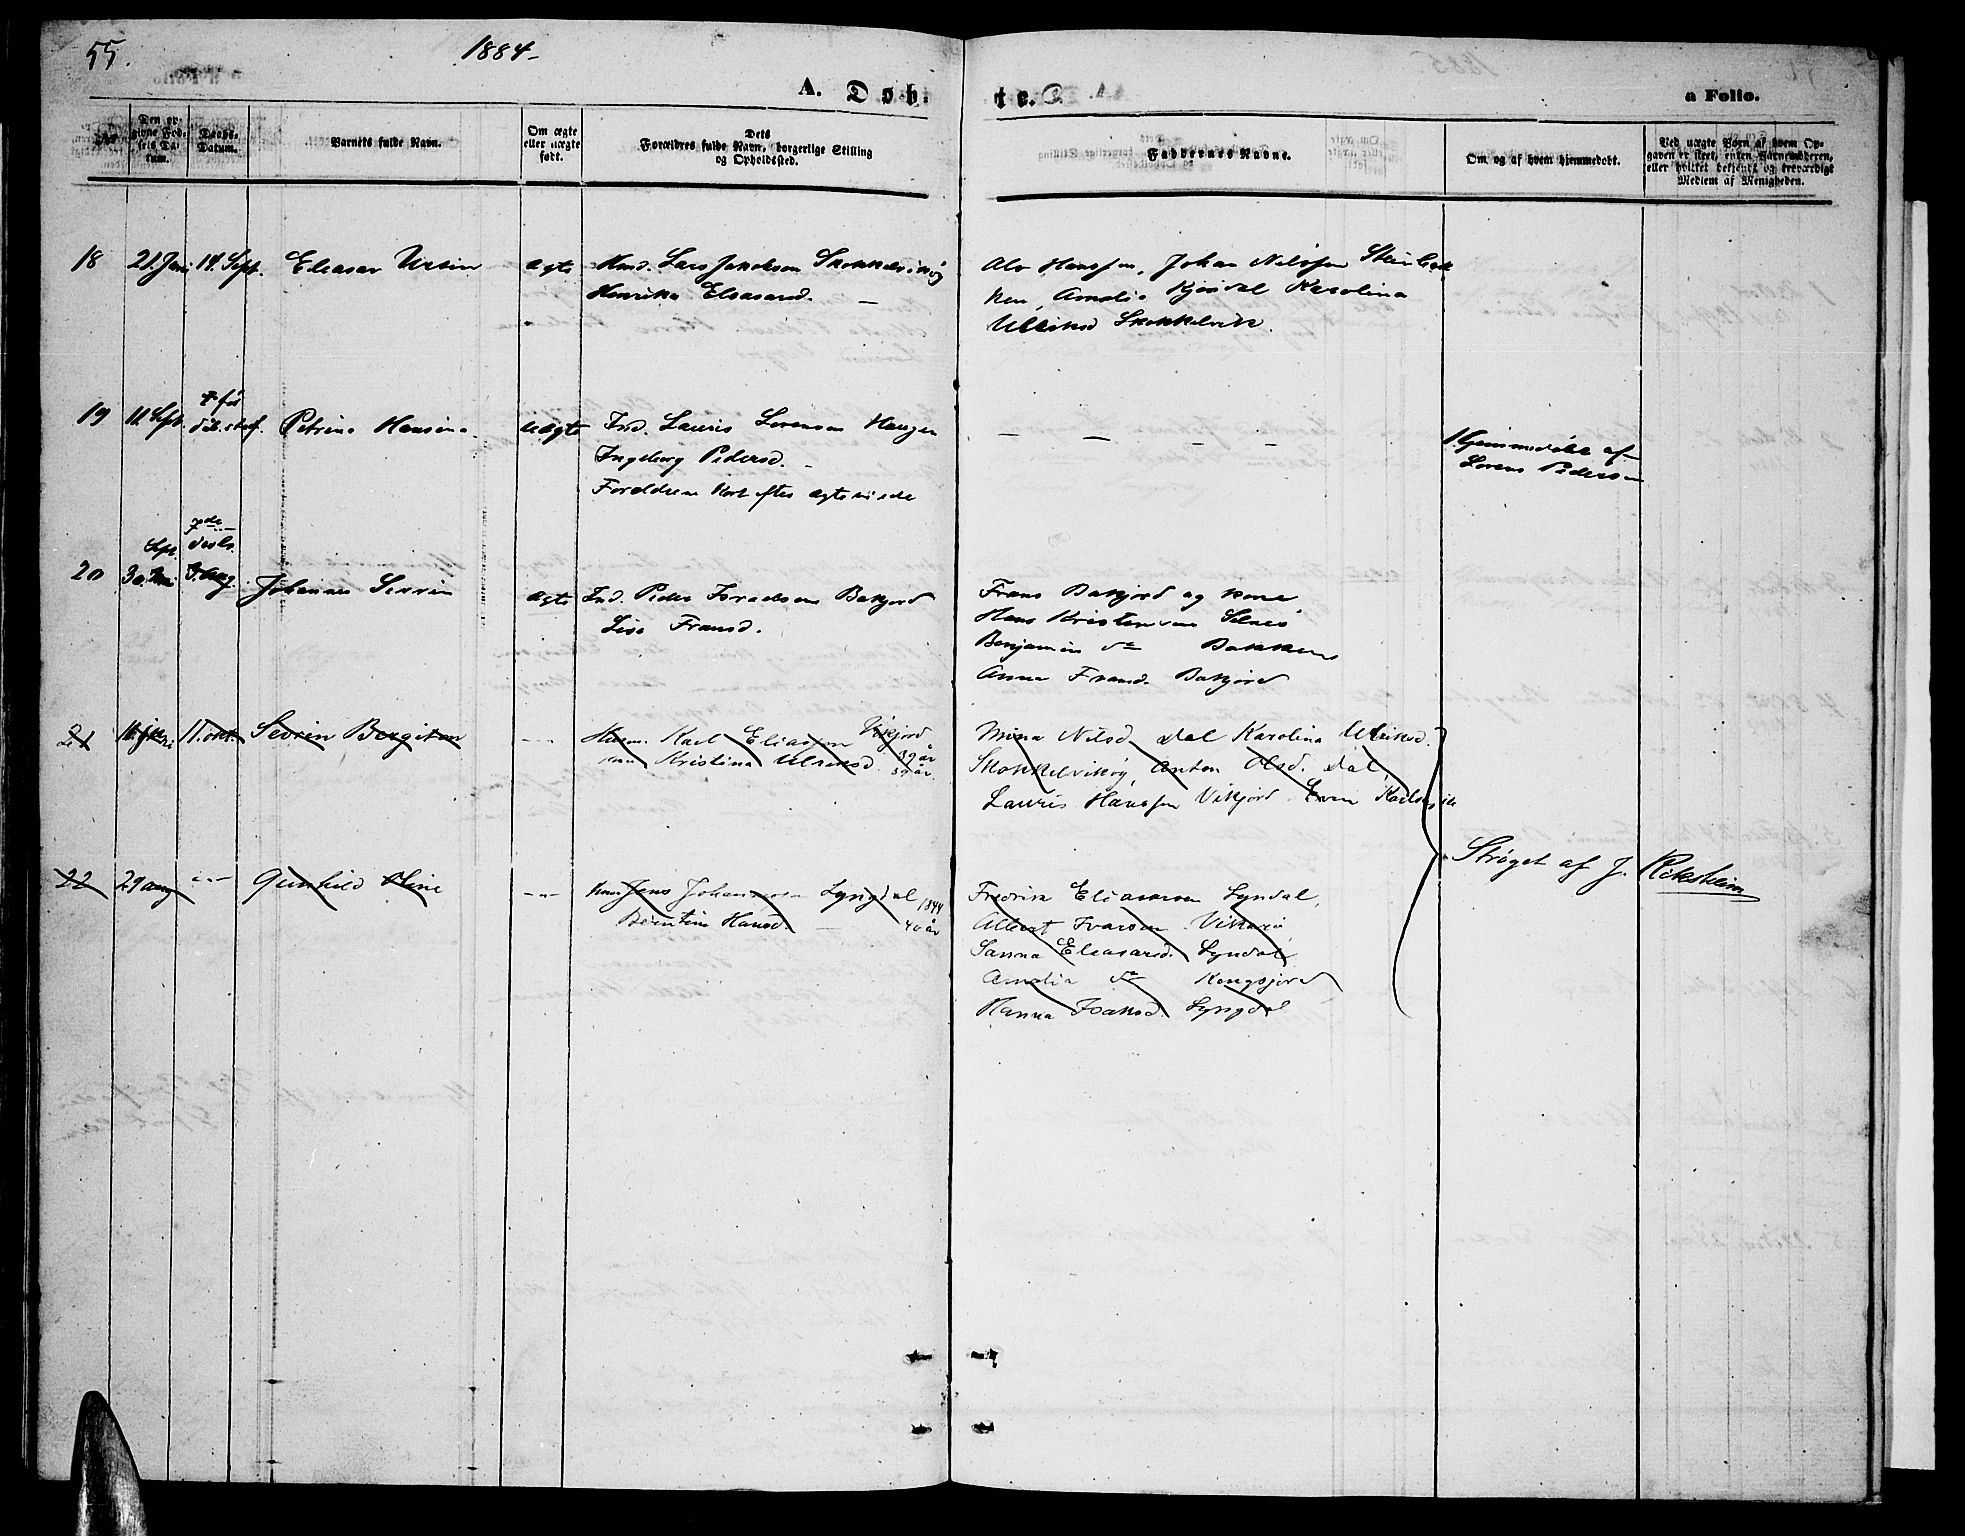 55.
1884-
A. Døb.
te.
a Folio.
No.
Den opgivne Fødsels Datum.
Daabs-Datum.
Barnets fulde Navn.
Om ægte eller uægte født.
Dets Forældres fulde Navn, borgerlige Stilling og Opholdssted.
Faddernes Navne.
Om og af hvem hjemmedøbt.
Ved uægte Børn af hvem Opgaven er skeet, enten Barnemoderen, eller hvilket bekjendt og troværdigt Medlem af Menigheden.
18 21. Juni 14. Sept. Eleasar Ursin ægte Kmd. Lars Jakobsen Skokkelvikøy
Henrika Eleasarsd. —
Alv Hanssen, Johan Nilssen Steinbak
ken, Amalie Kjosdal Karolina
Ulriksd Skokkelvik.
19 11. Sept. † før dåb. Petrine Hansina uægte Ind. Lauris Lorensen Haugen
Ingeborg Pedersd. -
Forældrene kort efter ægteviede
— — — —
Hjemmedøbt af
Lorens Pedersen
20 30. Sept. 7de decbr. Johannes Sevrin ægte Ind. Peder Israelsen Bakjord
Lise Fransd.
Frans Bakjord og kone
Hans Kristensen Selnes
Benjamin do Bakken
Anna Fransd. Bakjord
21 11. okt. Sevrin Bergiton --- Karl Eliassen Vikjord
Kristina Ulriksd. 39 år
39 år
Mina Nilsd. Dal Karolina Ulriksd.
Skokkelvikøy, Anton Olsd. Dal,
Lauris Hanssen Vikjord. Even
22 29 aug --- Gunhild Oline --- Jens Johannesen Lyngdal 1844
Berntine Hansd. — 40 år
Fredrik Eliassen Lyndal,
Albert Ivarsen
Sanna Eleasarsd. Lyndal
Amalia do Kongsjord
Hanna Isaksd. Lyngdal
Strøget af J. Reksheim